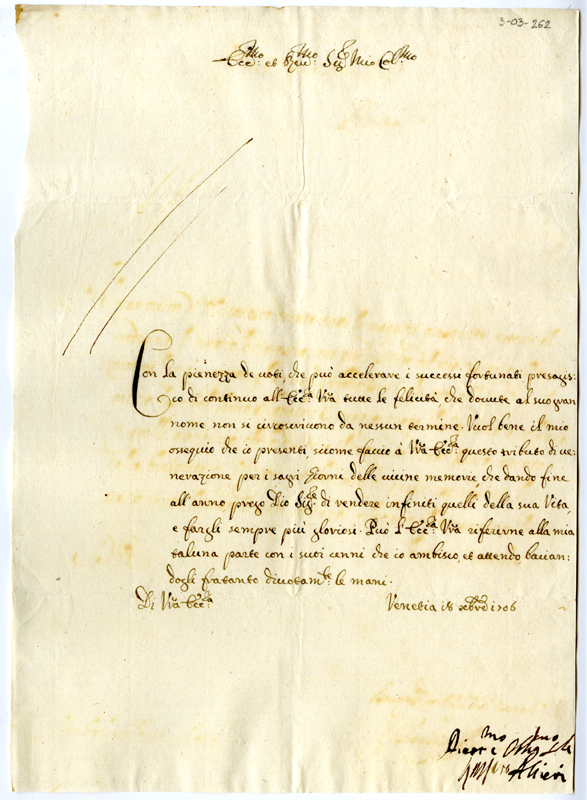 3-03-262
Ecc.mo et Reu.mo Sig.r Mio Col.mo
Con la pienezza de uoti, che può accelerare i successi fortunati presagis:
co di continuo all'Ecc.za V̄ra tutte le felicità che douute al suo gran
nome non si circoscriuono da nessun termine. Vuol bene il mio
ossequio che io presenti, sicome faccio à V̄ra Ecc.za questo tributo di ue:
nerazione per i sagri Giorni delle diuine memorie, che dando fine
all'anno prego Dio Sig.re di rendere infiniti quelli della sua Vita,
e fargli sempre più gloriosi. Può l'Ecc.za V̄ra riferirne alla mia
taluna parte con i suoi cenni che io ambisco, et attendo bacian:
dogli fratanto diuotam.te le mani.
Di V̄ra Ecc.za
Venetia 18 xbre 1706
Diuot.mo Oblig.mo
Altieri